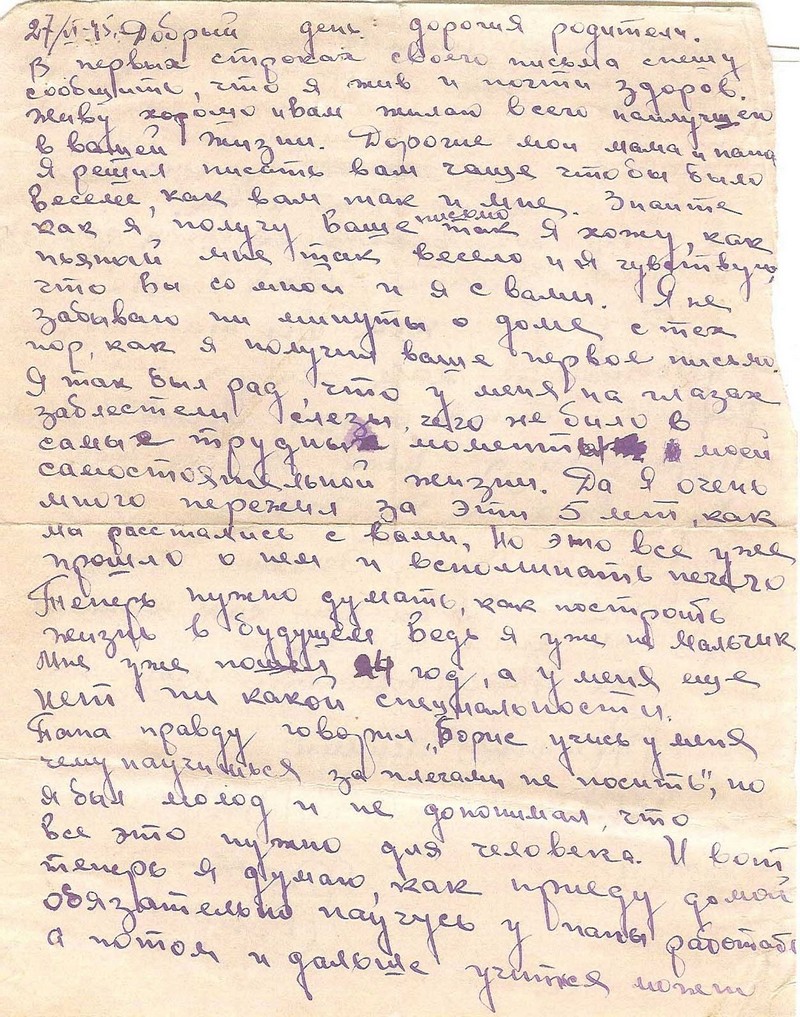 27/VI-45. Добрый день дорогия родители.
В первых строках своего письма спешу
сообщить, что я жив и почти здоров.
Живу хорошо и вам жилаю всего наилучшего
в вашей жизни. Дорогие мои мама и папа
я решил писать вам чаще чтобы было
веселе, как вам так и мне. Знаите
как я получу ваше письмо так я хожу, как
пьяный мне так весело и я чувствую,
что Вы со мной и я с вами. Я не
забываю ни минуты о доме с тех
пор, как я получил ваше первое письмо.
Я так был рад, что у меня на глазах
заблестели слезы, чего не было в
самые трудные моменты моей
самостоятельной жизни. Да я очень
много пережил за эти 5 лет, как
мы расстались с вами, Но это все уже
прошло о нем и вспоминать нечего
Тнеперь нужно думать, как построить
жизнь в будущем ведь я уже не мальчик
мне уже пошел 24 год, а у меня еще
нет ни какой специальности.
Папа правду говорил „Борис учись у меня
чему научишься за плечами не носить", но
я был молод и не допонимал, что
все это нужно для человека. И вот
теперь я думаю, как приеду домой
обязательно научусь у папы работать
а потом и дальше учится может